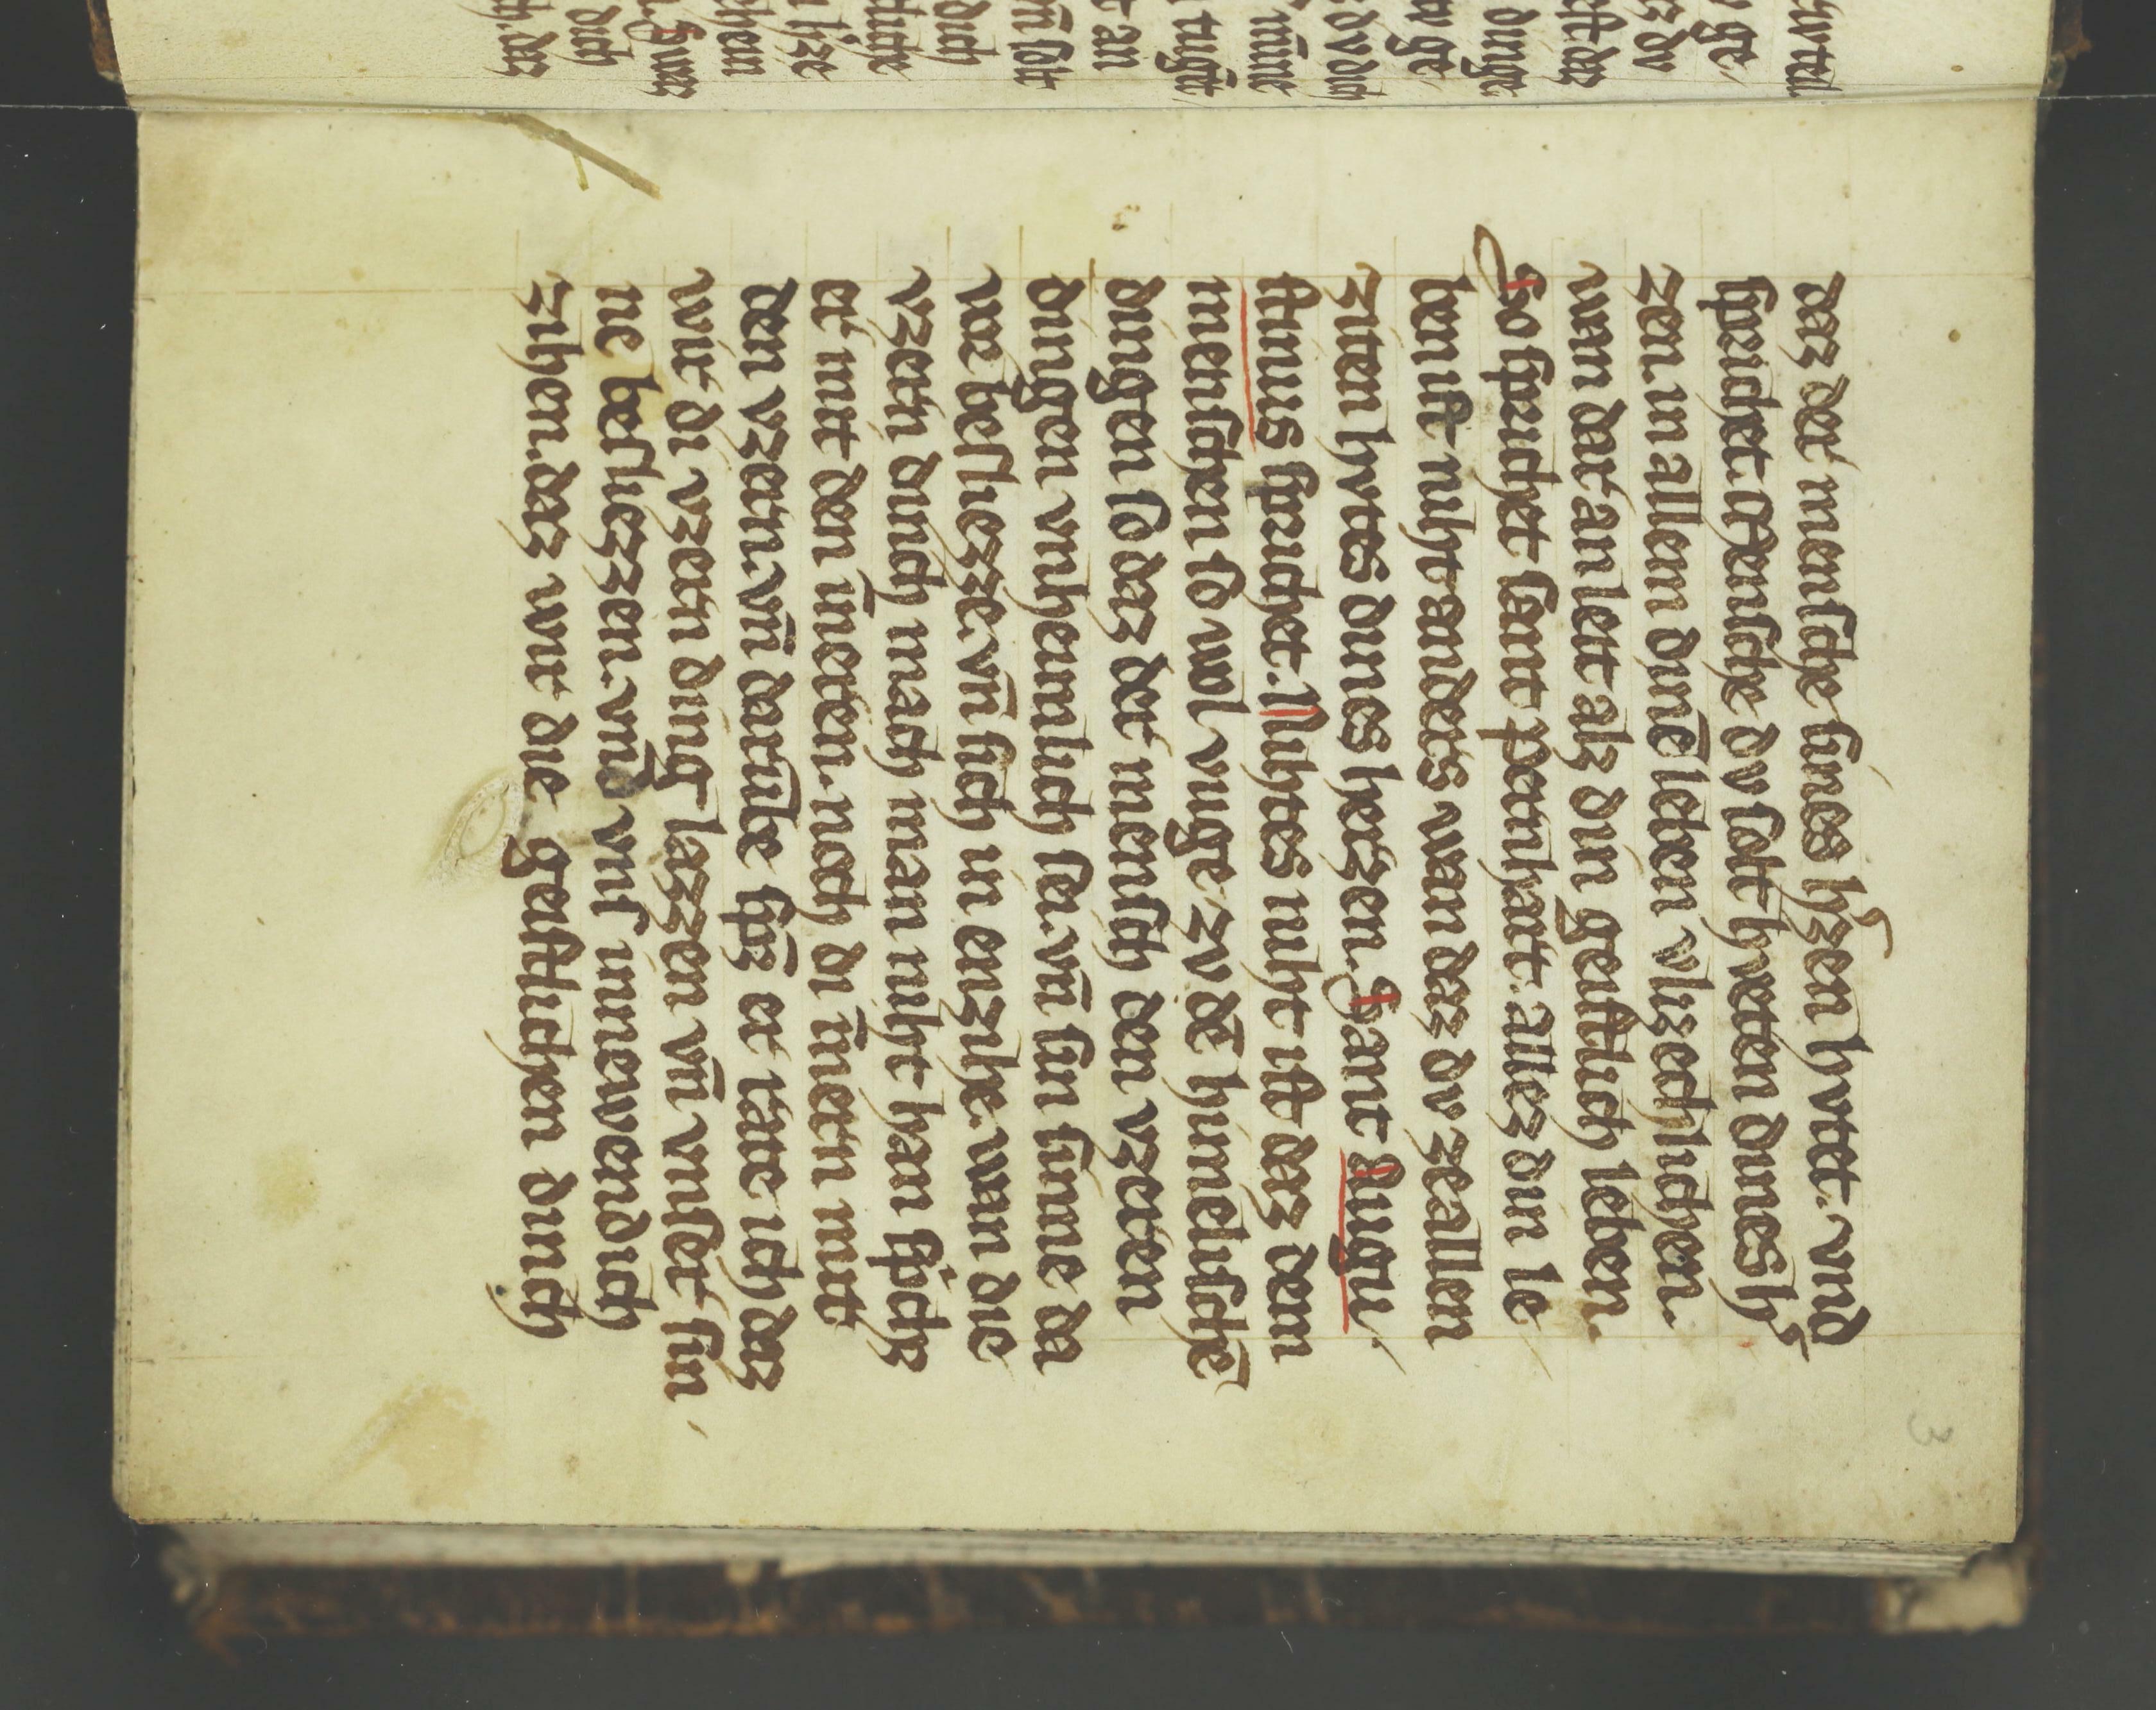 daz der mensche sines h'zen hvtet. vnd
sprichet. Mensche dv solt hveten dines h'
zen. in allem dinē leben vlizechlichen.
wen dar an leit alz din geistlich leben.
So sprichet sant pernhart. allez din le
ben ist niht anders wan daz dv ze allen
ziten hvtes dines herzen. Sant Augu
stinus sprichet. Nihtes niht ist daz dem
menschen so wol vuge zv dē himelischē
dingen so daz der mensch den vzeren
dingen vnheimlich sei. vn̄ sin sinne da
vor besliezze. vn̄ sich in enzihe. wan die
vzern dinch mach man niht han sp̄chz
er mit den inneren. noch di īnern mit
den vzern. vn̄ darūbe sp̄z er rate ich daz
wir di vzern ding lazzen vn̄ vnser sin
ne besliezzen. vnd vns innewendich
zihen. daz wir die geistlichen dinch